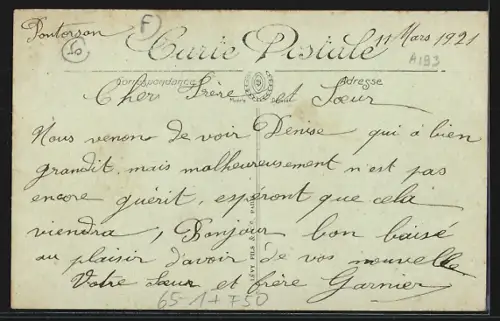 Pontorson
50
F
Carte Postale
11 Mars 1921
A193
Correspondance
Adresse
Cher Frère et Sœur
Nous venon de voir Denise qui à bien
grandit, mais malheureusement n'est pas
encore guérit, espéront que cela
viendra, Bonjour bon baisé
au plaisir d'avoir de vos nouvelle
Votre Sœur et frère Garnier
LÉVY FILS & Cie, PARIS
65 1+750